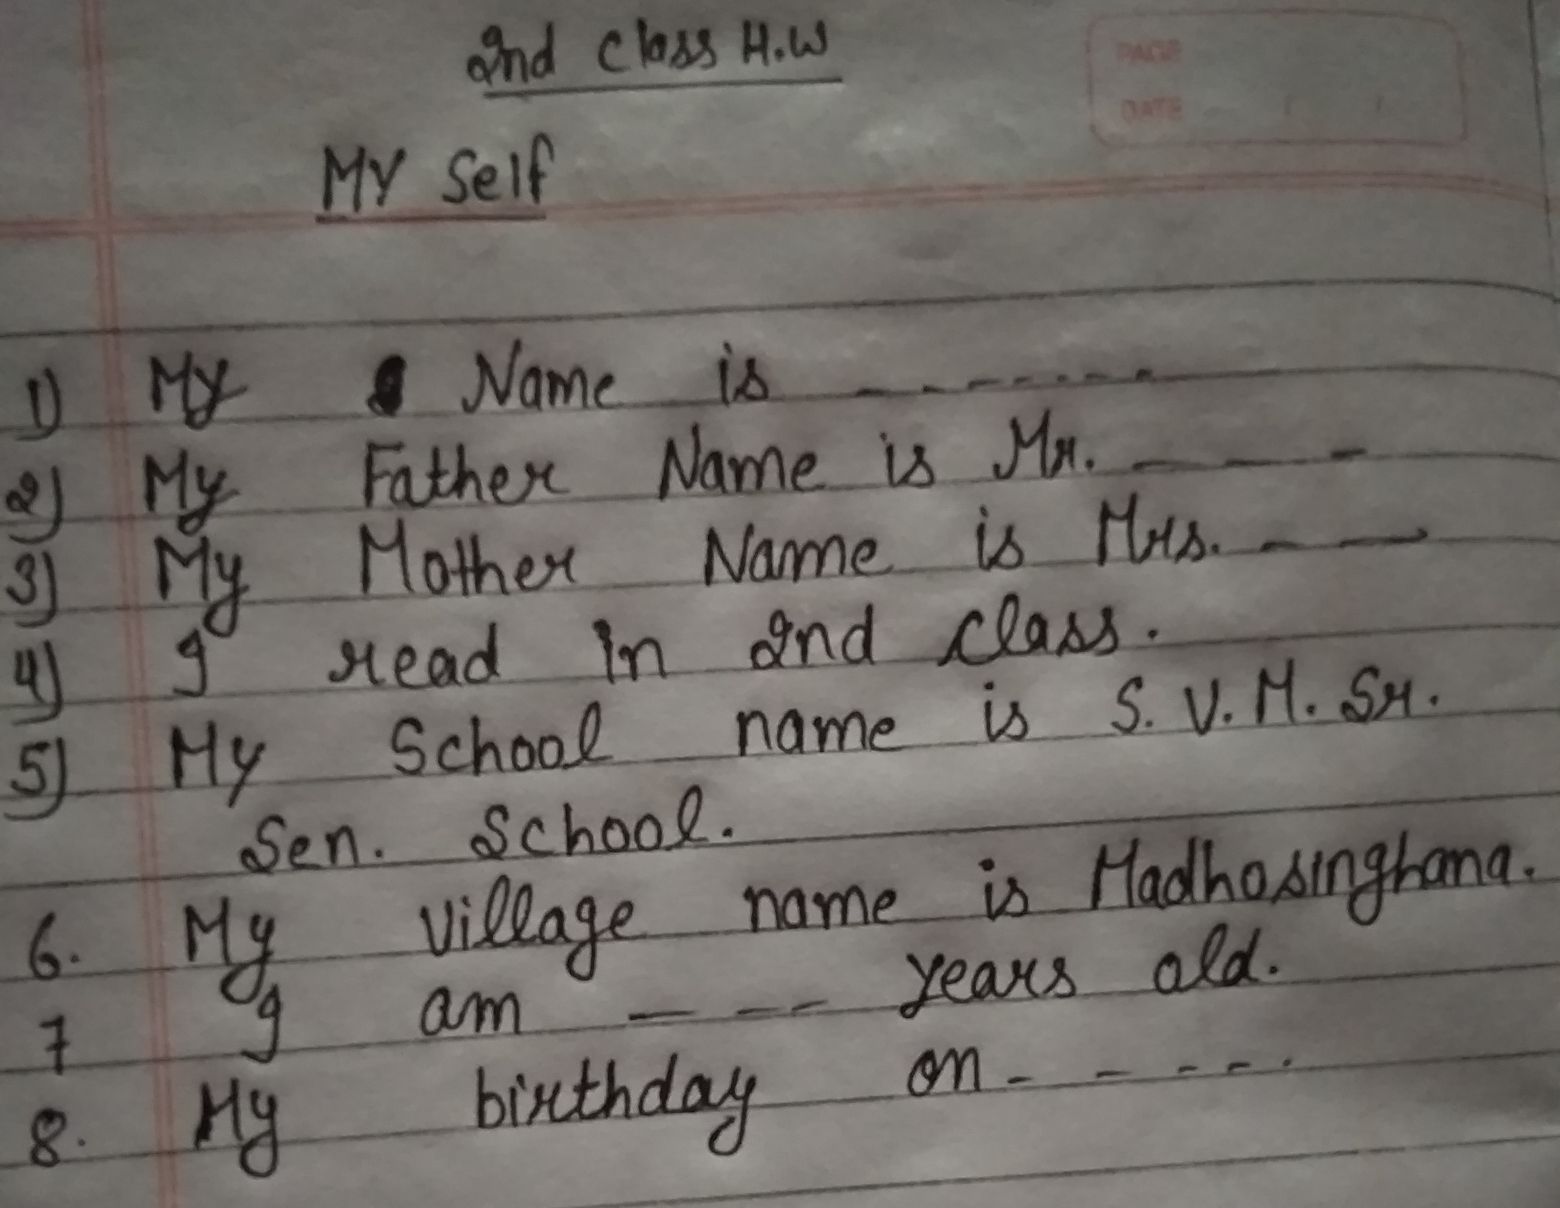 2nd Class H.W
PAGE
DATE / /
MY Self
1) My Name is - - - - - - -
2) My Father Name is Mr. - - -
3) My Mother Name is Mrs. - -
4) I read in 2nd class.
5) My School name is S. V. M. Sr.
Sen. School.
6. My village name is Madhosinghana.
7 I am - - - years old.
8. My birthday on - - - - - .